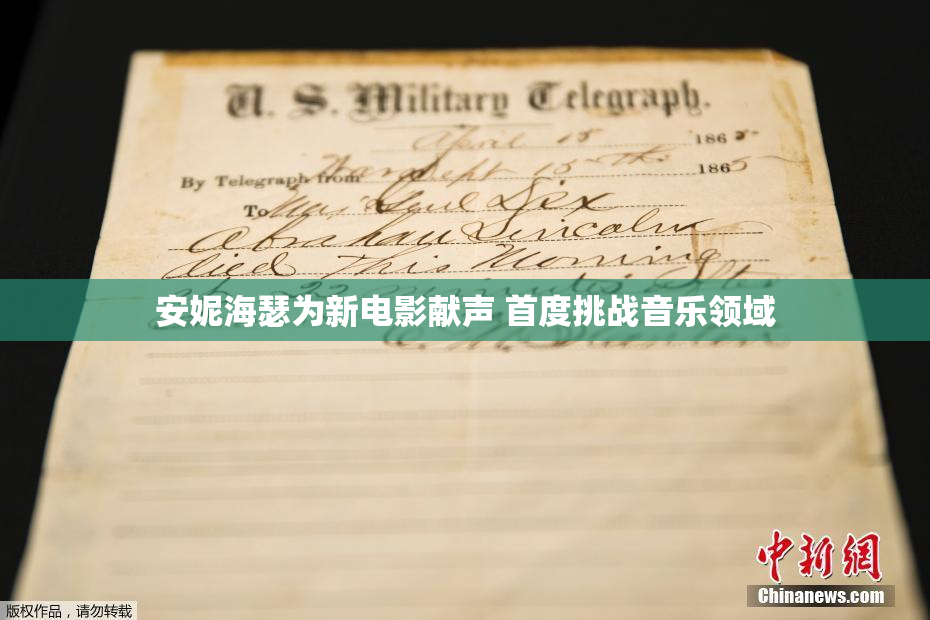 U. S. Military Telegraph.
April 15 1865
By Telegraph from War Dept 15th 1865
To Maj Genl Dix
Abraham Lincoln
died This Morning
at 22 minutes after
安妮海瑟为新电影献声 首度挑战音乐领域
E. M. Stanton
中新网
Chinanews.com
版权作品，请勿转载